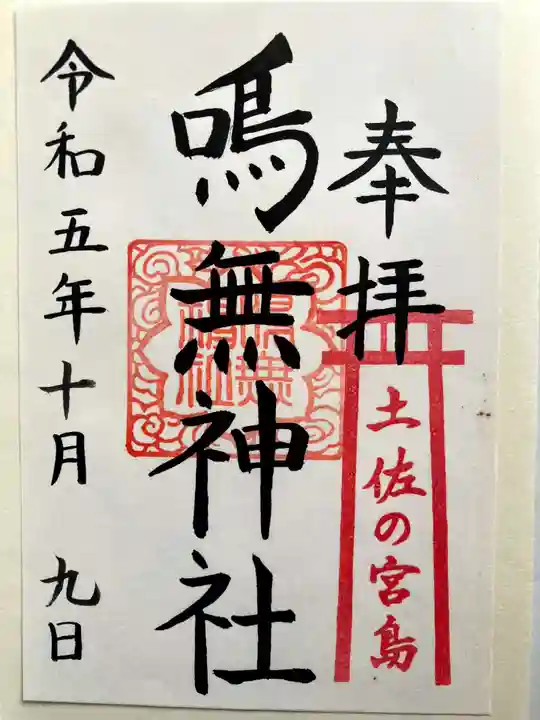 奉拝
土佐の宮島
鳴無神社
令和五年十月 九日